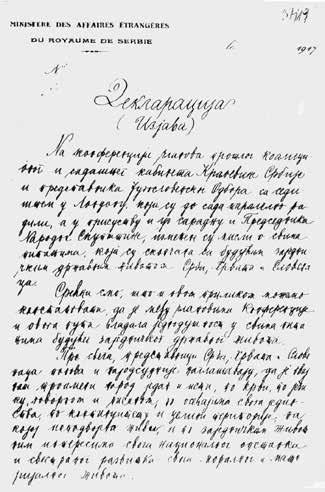 MINISTERE DES AFFAIRES ÉTRANGÈRES
DU ROYAUME DE SERBIE
le 1917
N
Декларација
(Изјава)
На конференцији чланова прошлог коалици
оног и садашњег кабинета Краљевине Србије
и представника Југословенског Одбора са седи
штем у Лондону, који су до сада паралелно ра
дили, а у присуству и сарадњи Председника
Народне Скупштине, измењене су мисли о свима
питањима, која су скопчана са будућим зајед
ничким државним животом Срба, Хрвата и Словена
ца.
Сретни смо, што и овом приликом можемо
констатовати, да је међу члановима Конференције
и овога пута владала једнодушност у свима пита
њима будућег заједничког државног живота.
Пре свега, представници Срба, Хрвата и Слове
наца поново и најодсудније наглашавају, да је овај
наш троимени народ један и исти, по крви, по јези
ку, говорном и писаном, по осећајима свога једин
ства, по континуитету и целини територије, на
којој неподвојено живи, и по заједничким живот
ним интересима свога националног опстанка
и свестраног развитка свога моралног и мате
ријалног живота.